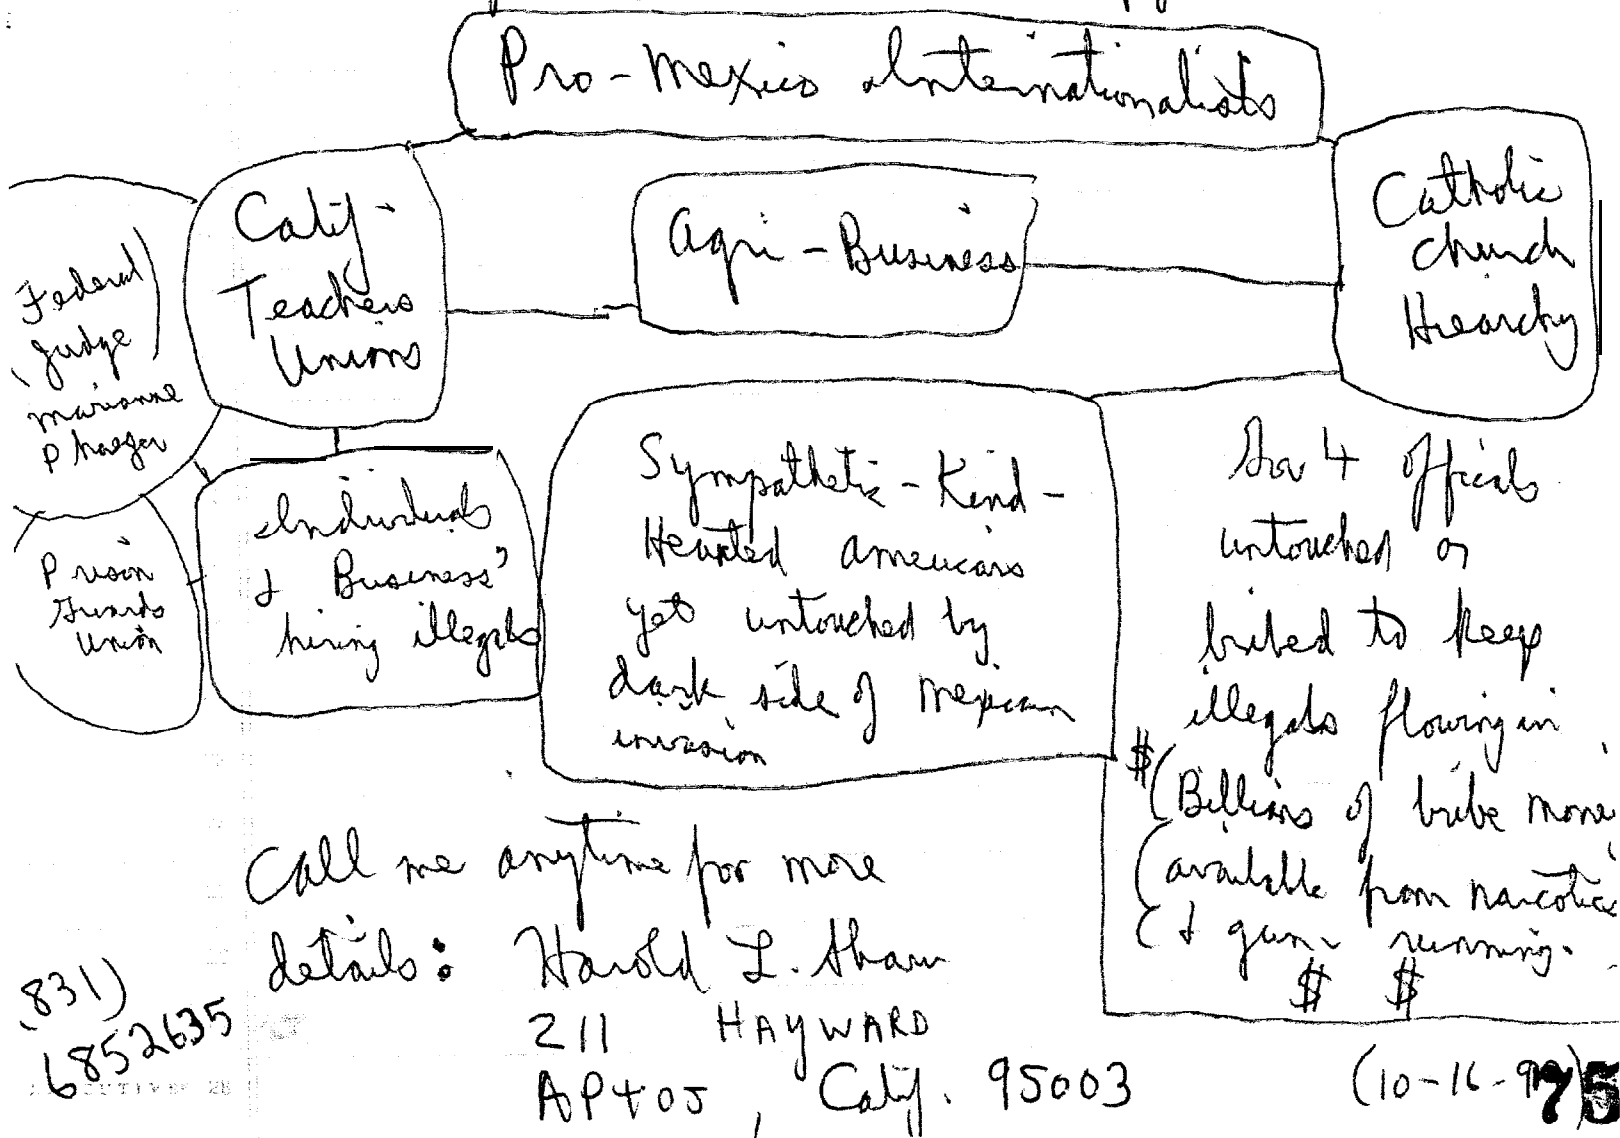 Pro-Mexico Internationalists
Calif.
Teachers
Unions
Agri-Business
Catholic
Church
Hiearchy
Federal
Judge
Marianne
Pfaelzer
Prison
Guards
Union
Individuals
& Business'
hiring illegals
Sympathetic-Kind-
Hearted Americans
yet untouched by
dark side of Mexican
invasion
Gov't officials
untouched or
bribed to keep
illegals flowing in
$ (Billions of bribe
(available from narcotics
( & gun running.
$ $
Call me anytime for more
details: Harold L.
211 HAYWARD
APTOS, Calif. 95003
(831)
6852635
75